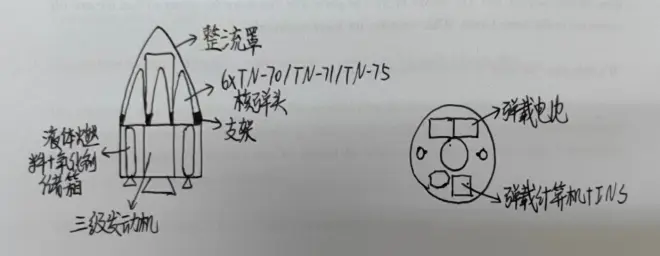 整流罩
6xTN-70/TN-71/TN-75
核弹头
支架
液体燃
料+氧化剂
储箱
三级发动机
弹载电池
弹载计算机+INS